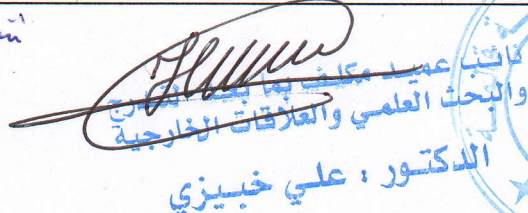 نائب عميد مكلف بما بعد التدرج
والبحث العلمي والعلاقات الخارجية
الدكتور : علي خبيزي